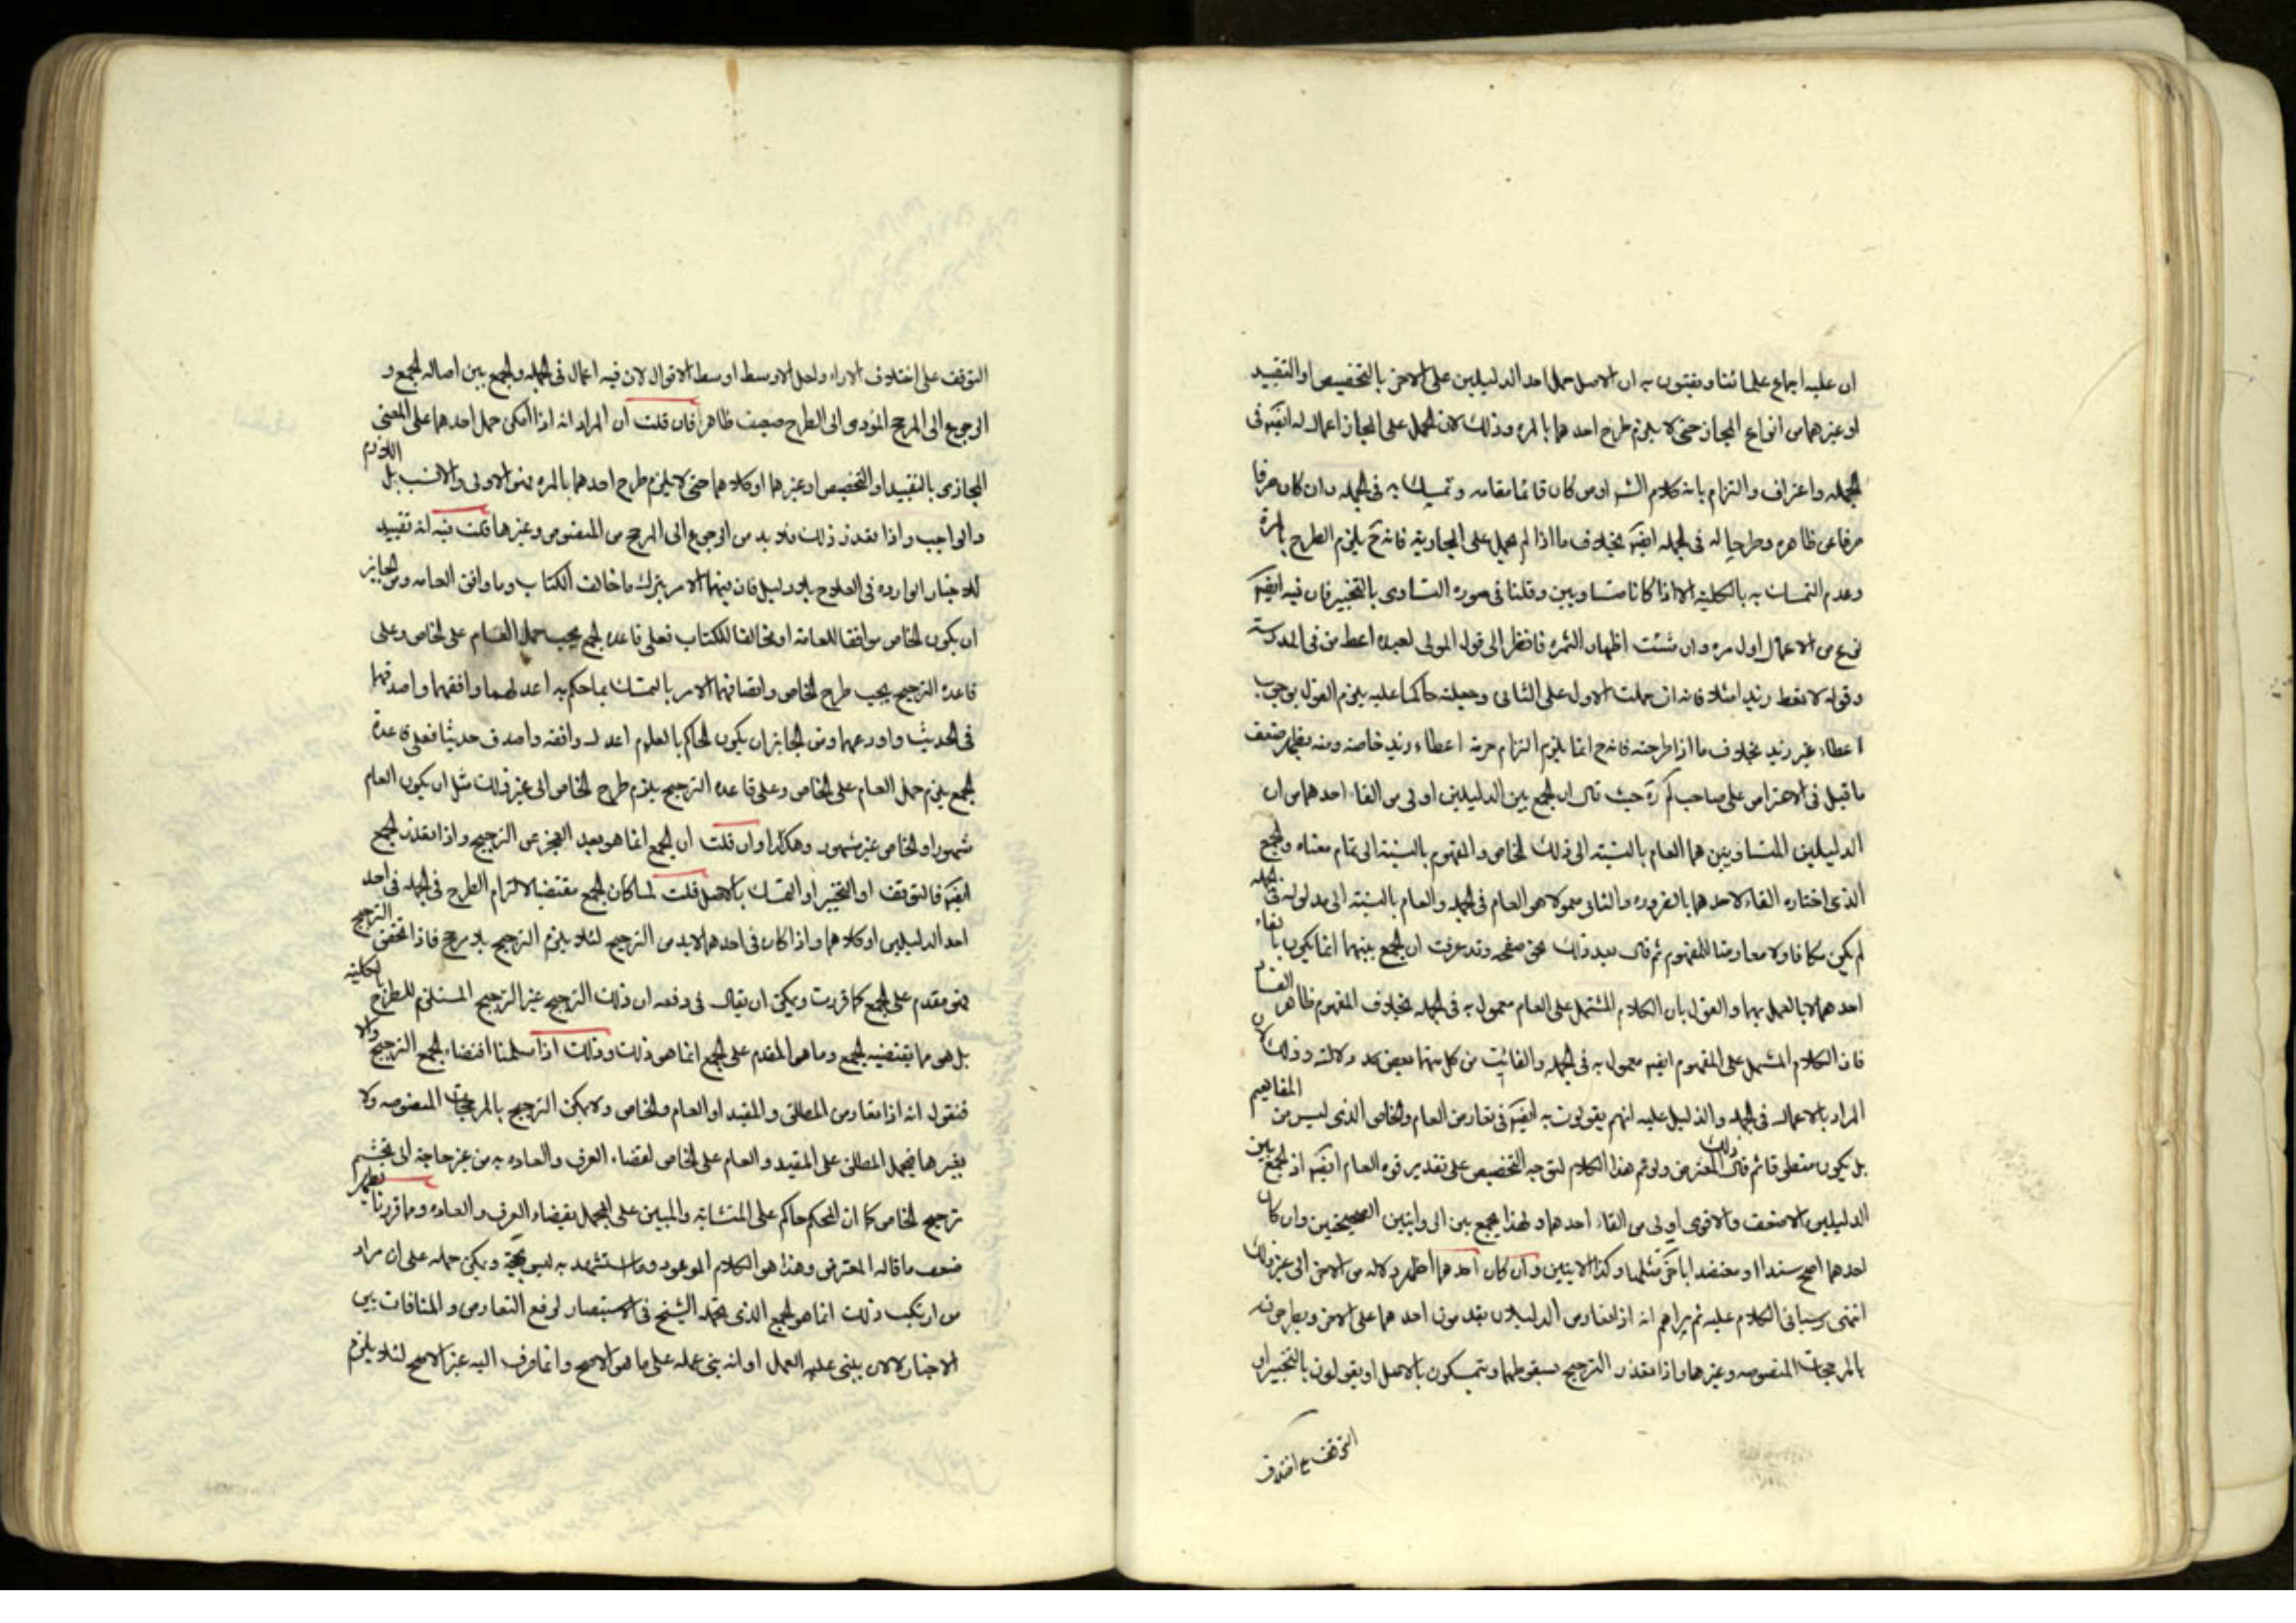 ان عليه اجماع علمائنا ويفتون به ان الاصل حمل احد الدليلين على الاخر بالتخصيص او التقييد
او غيرهما من انواع المجاز حتى لا يلزم طرح احدهما بالمره وذلك لان الحمل على المجاز اعمال له ايضا فى
الجمله واعتراف والتزام بانه كلام الشـ او من كان قائما مقامه وتمسك به فى الجمله وان كان صرفا
صرفا عن ظاهره وطرحا له فى الجمله ايضا بخلاف ما اذا لم يحمل على المجازية فانه ح يلزم الطرح بالمرة
وعدم التمسك به بالكلية الا اذا كانا متساويين وقلنا فى صوره التساوى بالتخيير فان فيه ايضا
نوع من الاعمال اول مره وان شئت اظهار الثمره فانظر الى قول المولى لعبده اعط من فى المدرسة
وقوله لا تعط زيد امثلا فانه ان حملت الاول على الثانى وجعلته حاكما عليه يلزم القول بوجوب
اعطاء غير زيد بخلاف ما اذا طرحته فانه ح انما يلزم التزام حرمة اعطاء زيد خاصة ومنه يظهر ضعف
ما قيل فى الاعتراض على صاحب لم ره حيث قال ان الجمع بين الدليلين اولى من القاء احدهما من ان
الدليلين المتساويين هما العام بالنسبة الى ذلك الخاص والمفهوم بالنسبة الى تمام معناه والجمع
الذى اختاره القاء لاحدهما بالضروره والثانى معمولا هو العام فى الجمله والعام بالنسبة الى مدلوله فى الجمله
لم يكن مكافا ولا معارضا للمفهوم ثم قال بعد ذلك بنحو صفحه وقد عرفت ان الجمع بينهما انما يكون بالقاء
احدهما لا بالعمل بهما والقول بان الكلام المشتمل على العام معمول به فى الجمله بخلاف المفهوم ظاهر الفساد
فان الكلام المشتمل على المفهوم ايضا معمول به فى الجمله والفائت من كل منهما بعض مد دلالته وذلك لان
المراد بالاعمال فى الجمله والدليل عليه انهم يقولون به ايضا فى تعارض العام والخاص الذى ليس من المفاهيم
بل يكون منطوقا ثم قال ذلك المعترض ولو تم هذا الكلام لتوجه التخصيص على تقدير قوه العام ايضا اذ الجمع بين
الدليلين الاضعف والاقوى اولى من القاء احدهما ولهذا يجمع بين الروايتين الصحيحتين وان كان
احدهما اصح سندا او معتضدا باخرى مثلها وكذا الايتين وان كان احدهما اظهر دلاله من الاخر الى غير ذلك
انتهى وسياتى الكلام عليه ثم يراهم انه اذا تعارض الدليلان يقدمون احدهما على الاخر ويطرحونه
بالمرجحات المنصوصه وغيرها واذا تعذر الترجيح بسقوطهما ويتمسكون بالاصل او يقولون بالتخيير او
التوقف على اختلاف
التوقف على اختلاف الاراء ولعل الاوسط اوسط الاقوال لان فيه اعمال فى الجمله والجمع بين اصاله الجمع و
الرجوع الى المرجح المؤدى الى الطرح ضعيف ظاهرا فان قلت ان المراد انه اذا امكن حمل احدهما على المعنى
المجازى بالتقييد او التخصيص او غيرهما او كلاهما حتى لا يلزم طرح احدهما بالمره فهو الاولى والانسب بل اللازم
والواجب واذا تعذر ذلك فلا بد من الرجوع الى المرجح من المنصوص وغيرها قلت فيه انه تقييد
للاخبار الوارده فى العلاج بلا دليل فان فيها الامر بترك ما خالف الكتاب وما وافق العامه ومن الجايز
ان يكون الخاص موافقا للعامة او مخالفا للكتاب فعلى قاعده الجمع يجب حمل العام على الخاص وعلى
قاعده الترجيح يجب طرح الخاص وايضا فيها الامر بالتمسك بما حكم به اعدلهما وافقهما واصدقهما
فى الحديث واورعهما ومن الجايز ان يكون الحاكم بالعلوم اعدل وافقه واصدق حديثا فعلى قاعدة
الجمع يلزم حمل العام على الخاص وعلى قاعده الترجيح يلزم طرح الخاص الى غير ذلك مثل ان يكون العام
مشهورا والخاص غير مشهور وهكذا وان قلت ان الجمع انما هو بعد العجز عن الترجيح واذا تعذر الجمع
ايضا فالتوقف او التخيير او التمسك بالاصل قلت لما كان الجمع مقتضيا لالتزام الطرح فى الجمله فى احد
احد الدليلين او كلاهما واذا كان فى احدهما لابد من الترجيح لئلا يلزم الترجيح بلا مرجح فاذا تحقق الترجيح
فهو مقدم على الجمع كما قررت ويمكن ان يقال فى دفعه ان ذلك الترجيح غير الترجيح المستلزم للطرح بالكلية
بل هو مما يقتضيه الجمع وما هو المقدم على الجمع انما هو ذلك وذلك اذا سلمنا اقتضاء الجمع الترجيح والا
فنقول انه اذا تعارض المطلق والمقيد او العام والخاص ولا يمكن الترجيح بالمرجحات المنصوصه ولا
بغيرها فيحمل المطلق على المقيد والعام على الخاص لقضاء العرف والعاده به من غير حاجة الى تجشم
ترجيح الخاص كما ان المحكم حاكم على المتشابه والمبين على المجمل بقضاء العرف والعاده ومما قررنا يظهر
ضعف ما قاله المعترض وهذا هو الكلام الموعود وما استشهد به ليس بحجة ويمكن حمله على ان مراد
من ارتكب ذلك انما هو الجمع الذى يجمعه الشيخ فى الاستبصار لرفع التعارض والمنافات بين
الاخبار لا لان يبنى عليه العمل او انه بنى عمله على ما هو الاصح وانما صرف اليه غير الاصح لئلا يلزم